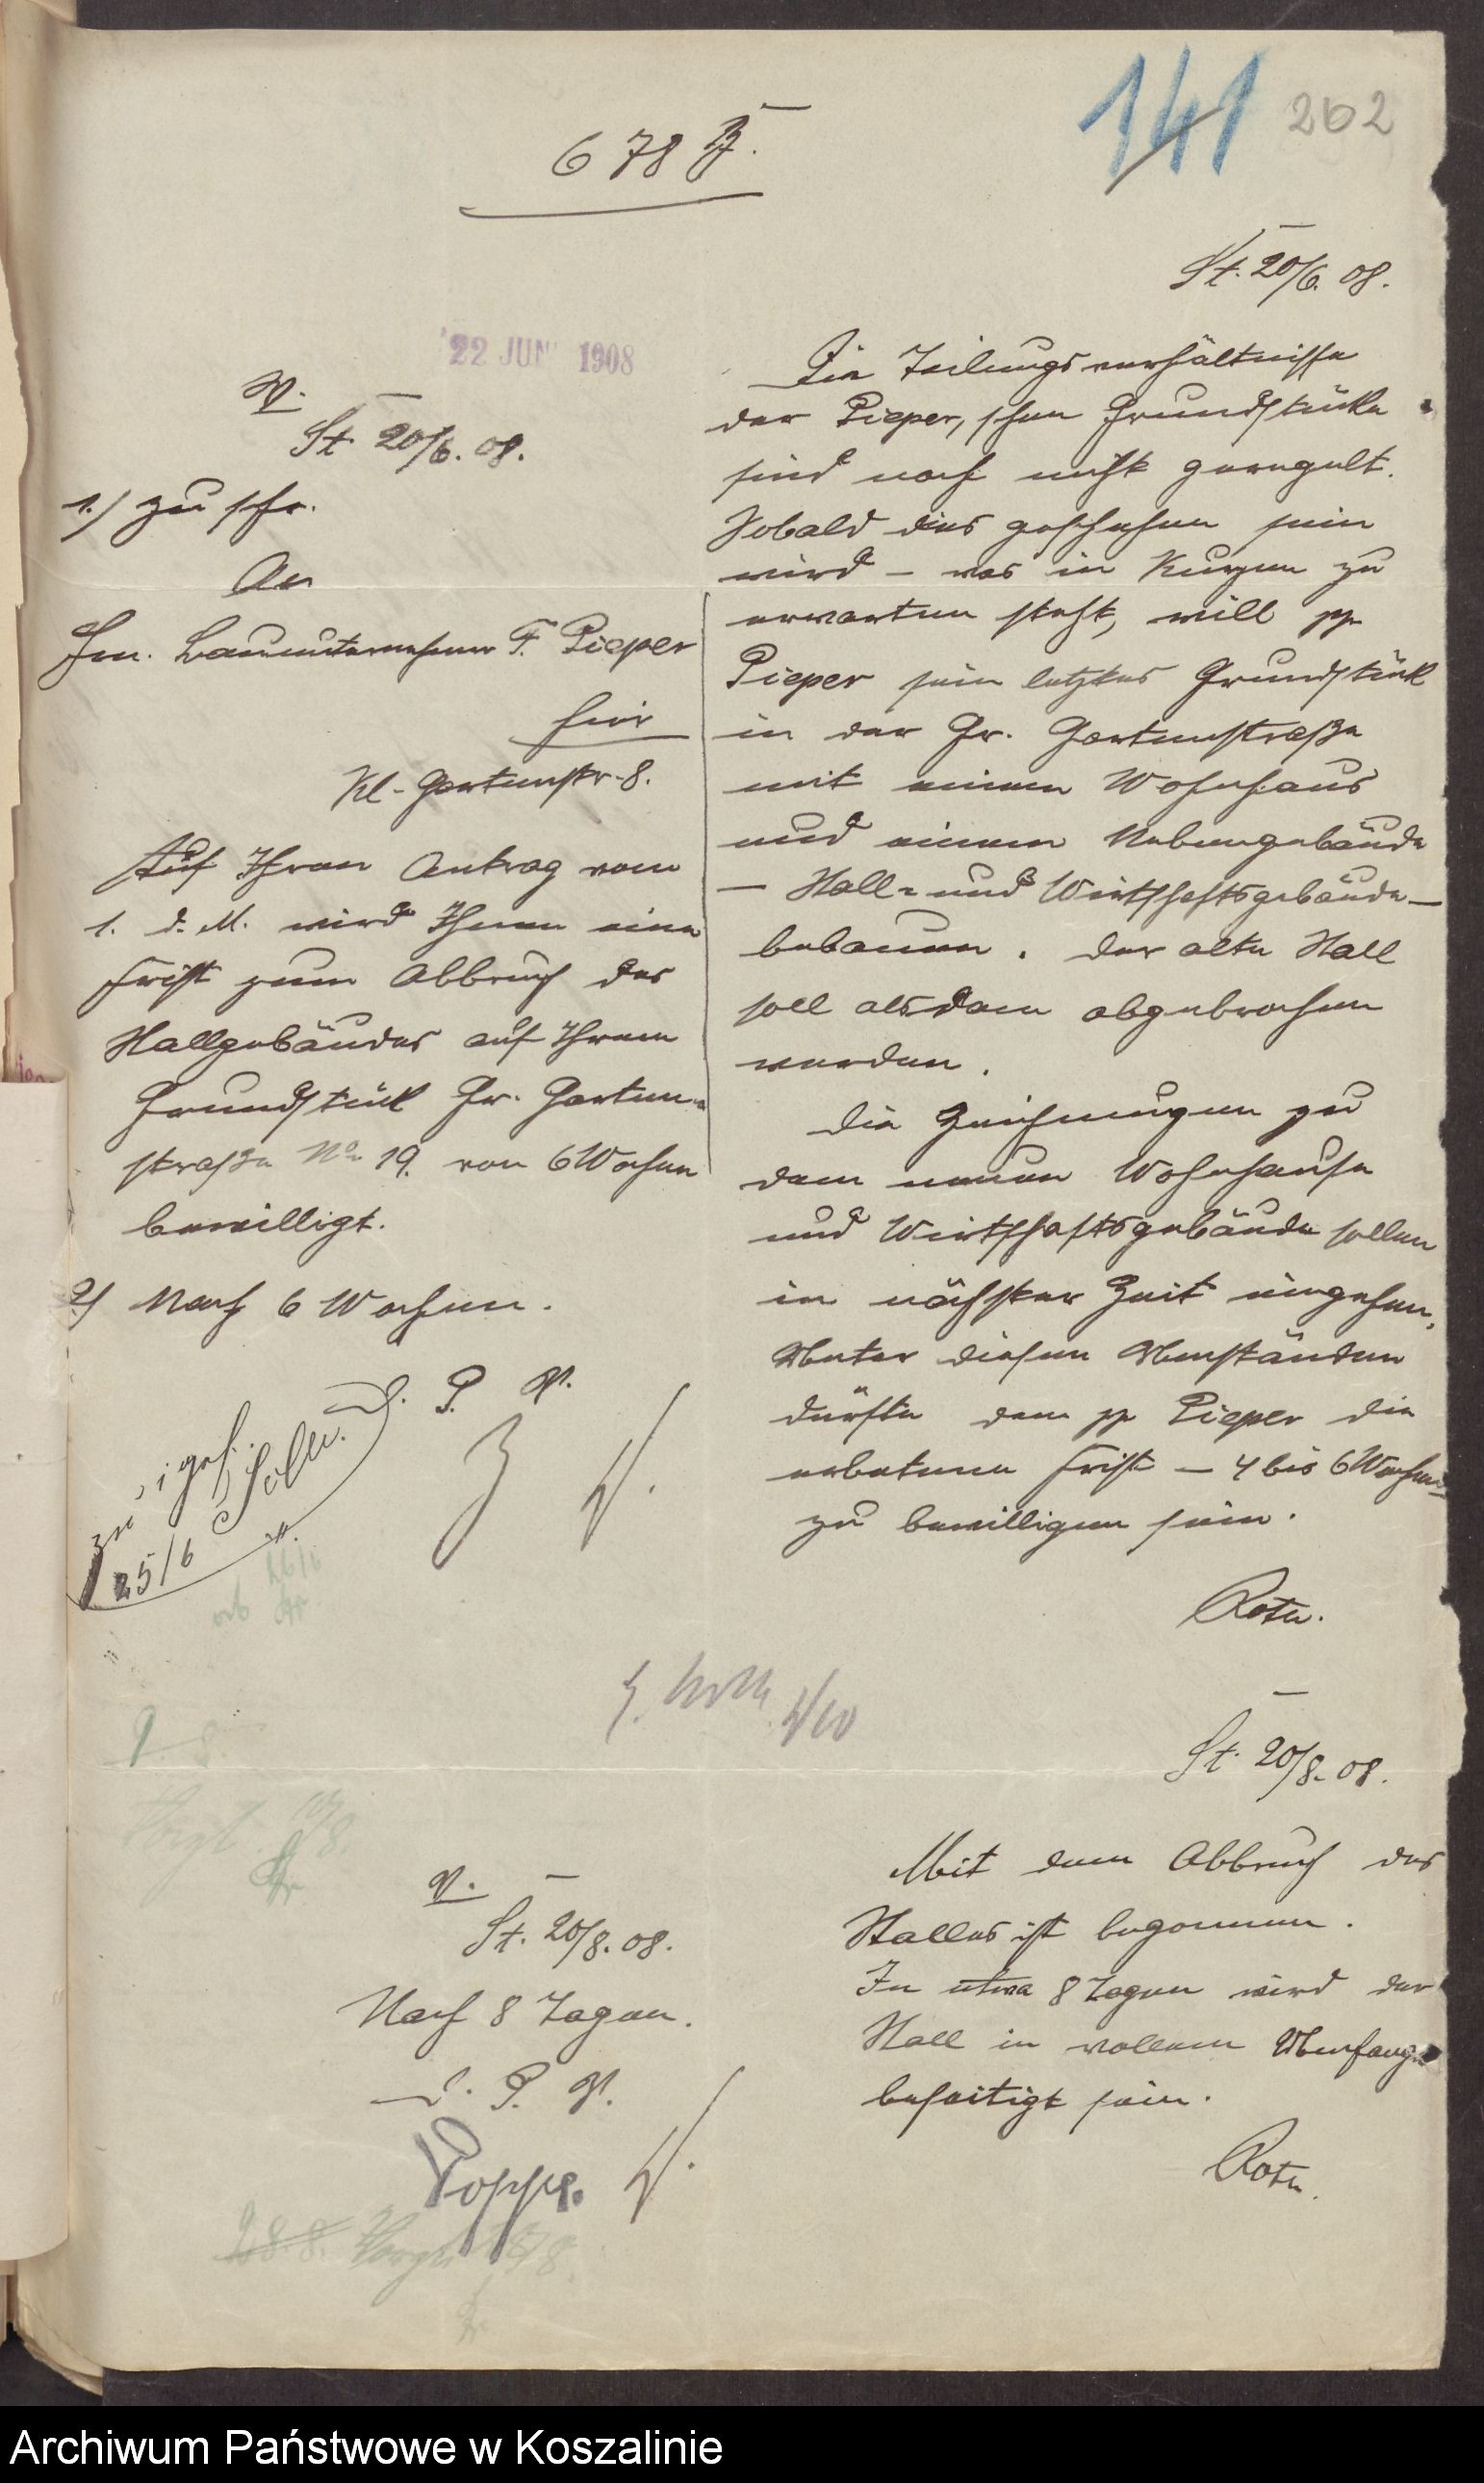 141 262
678 B.
22 JUN 1908
St. 20/6. 08.
Die Teilungsverhältnisse
der Pieper'schen Grundstücke
sind noch nicht geregelt.
Sobald dies geschehen sein
wird – was in Kurzem zu
erwarten steht, will pp
Pieper sein letztes Grundstück
in der Gr. Gartenstraße
mit einem Wohnhaus
und einem Nebengebäude
– Stall- und Wirtschaftsgebäude –
bebauen. Der alte Stall
soll alsdann abgebrochen
werden.
Die Zeichnungen zu
dem neuen Wohnhause
und Wirtschaftsgebäude sollen
in nächster Zeit eingehen.
Unter diesen Umständen
dürfte dem pp Pieper die
erbetene Frist – 4 bis 6 Wochen –
zu bewilligen sein.
Rote.
V.
St. 20/6. 08.
1.) zu schr.
An
Hrn. Bauunternehmer F. Pieper
hier
Kl. Gartenstr. 8.
Auf Ihren Antrag vom
1. d. M. wird Ihnen eine
Frist zum Abbruch des
Stallgebäudes auf Ihrem
Grundstück Gr. Garten-
straße No 19. von 6 Wochen
bewilligt.
2) Nach 6 Wochen.
D. P. V.
zu 1 gef.
25/6
St. 20/8. 08.
Mit dem Abbruch des
Stalles ist begonnen.
In etwa 8 Tagen wird der
Stall in vollem Umfange
beseitigt sein.
Rote.
V.
St. 20/8. 08.
Nach 8 Tagen.
D. P. V.
Poppe.
28.8.
Archiwum Państwowe w Koszalinie